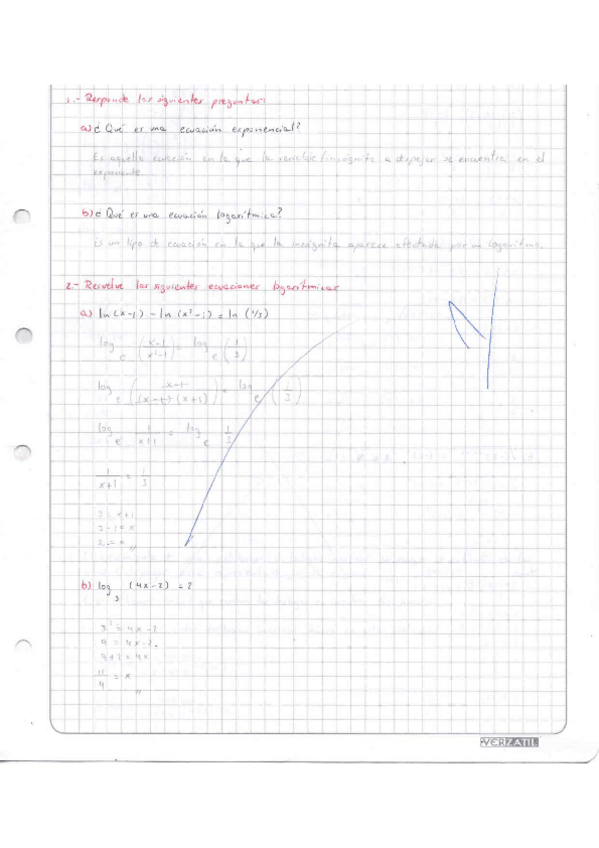 1.- Responde las siguientes preguntas:
a) ¿Qué es una ecuación exponencial?
Es aquella ecuación en la que la variable/incógnita a despejar se encuentra en el
exponente
b) ¿Qué es una ecuación logarítmica?
Es un tipo de ecuación en la que la incógnita aparece afectada por un logaritmo.
2.- Resuelve las siguientes ecuaciones logarítmicas
a) ln (x-1) - ln (x²-1) = ln (1/3)
log e (x-1 / x²-1) = log e (1/3)
log e (x-1 / (x-1)(x+1)) = log e (1/3)
log e 1/x+1 = log e 1/3
1/x+1 = 1/3
3 = x+1
3-1 = x
2 = x
b) log 3 (4x-2) = 2
3² = 4x-2
9 = 4x-2
9+2 = 4x
11/4 = x
VERZATIL